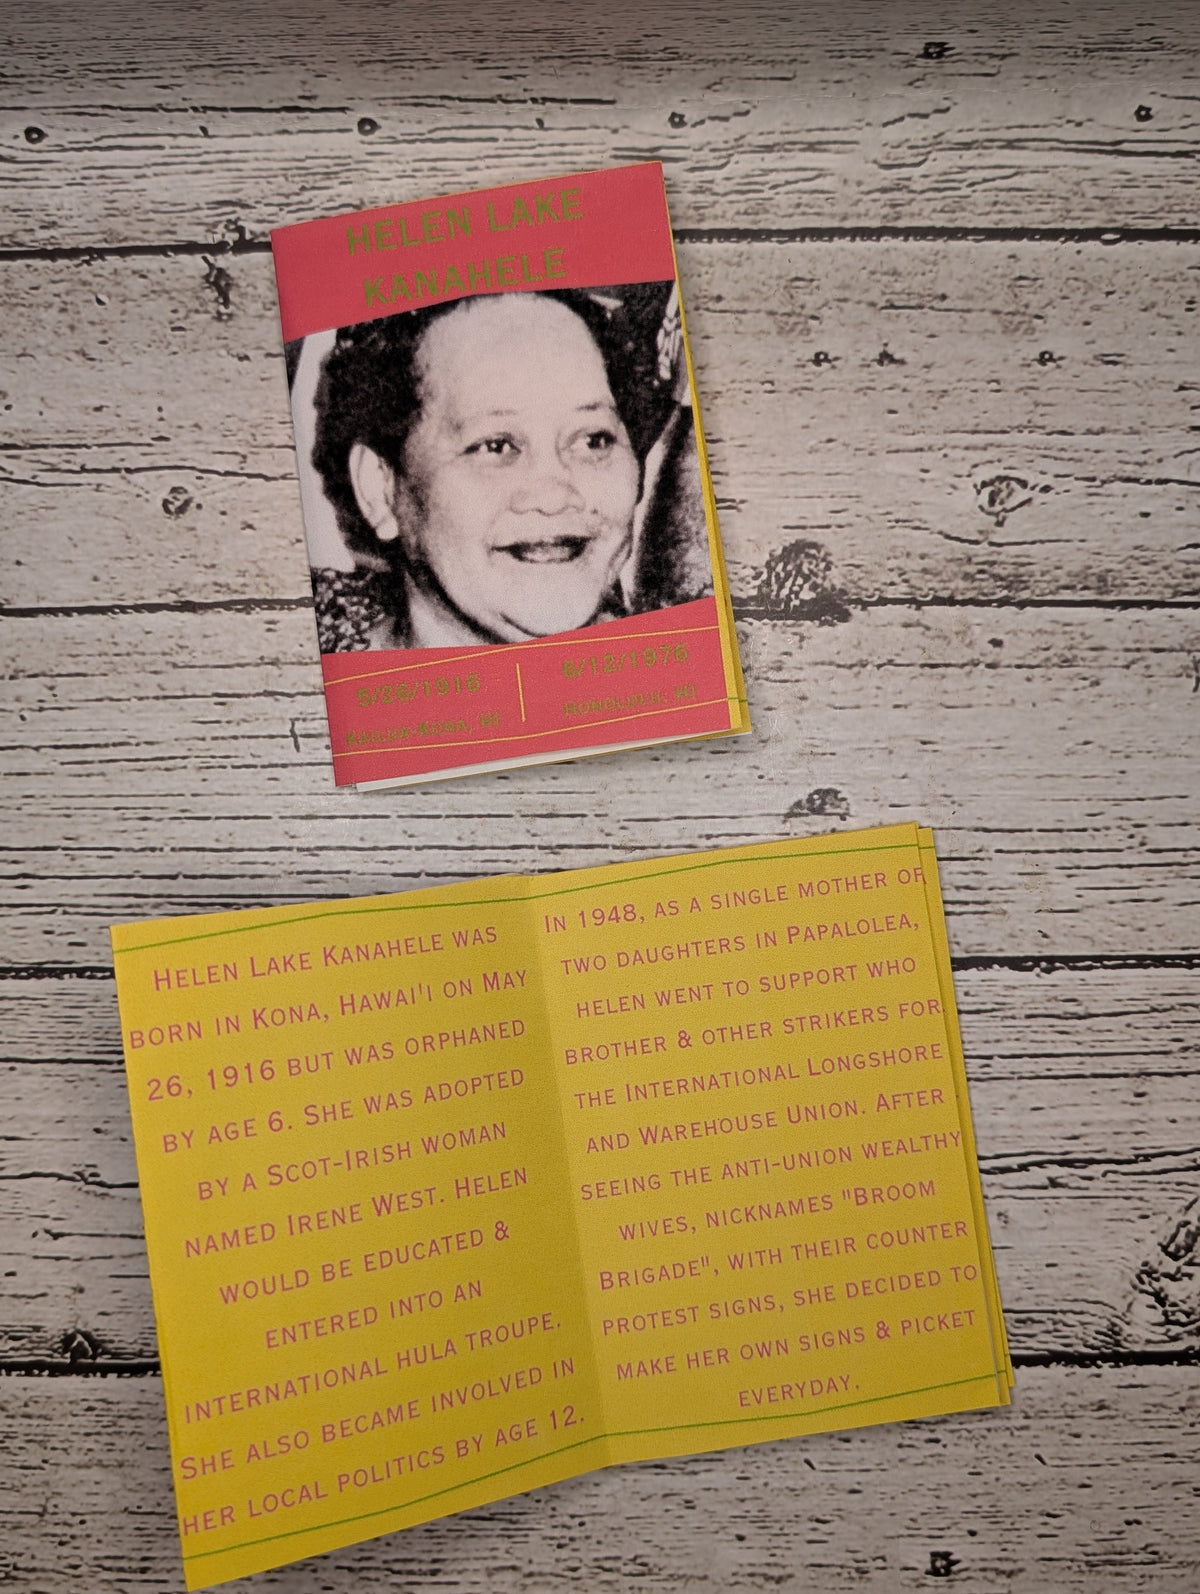 HELEN LAKE
KANAHELE
5/26/1916
KAILUA-KONA, HI
6/12/1976
HONOLULU, HI
HELEN LAKE KANAHELE WAS
BORN IN KONA, HAWAI'I ON MAY
26, 1916 BUT WAS ORPHANED
BY AGE 6. SHE WAS ADOPTED
BY A SCOT-IRISH WOMAN
NAMED IRENE WEST. HELEN
WOULD BE EDUCATED &
ENTERED INTO AN
INTERNATIONAL HULA TROUPE.
SHE ALSO BECAME INVOLVED IN
HER LOCAL POLITICS BY AGE 12.
IN 1948, AS A SINGLE MOTHER OF
TWO DAUGHTERS IN PAPALOLEA,
HELEN WENT TO SUPPORT WHO
BROTHER & OTHER STRIKERS FOR
THE INTERNATIONAL LONGSHORE
AND WAREHOUSE UNION. AFTER
SEEING THE ANTI-UNION WEALTHY
WIVES, NICKNAMES "BROOM
BRIGADE", WITH THEIR COUNTER
PROTEST SIGNS, SHE DECIDED TO
MAKE HER OWN SIGNS & PICKET
EVERYDAY.